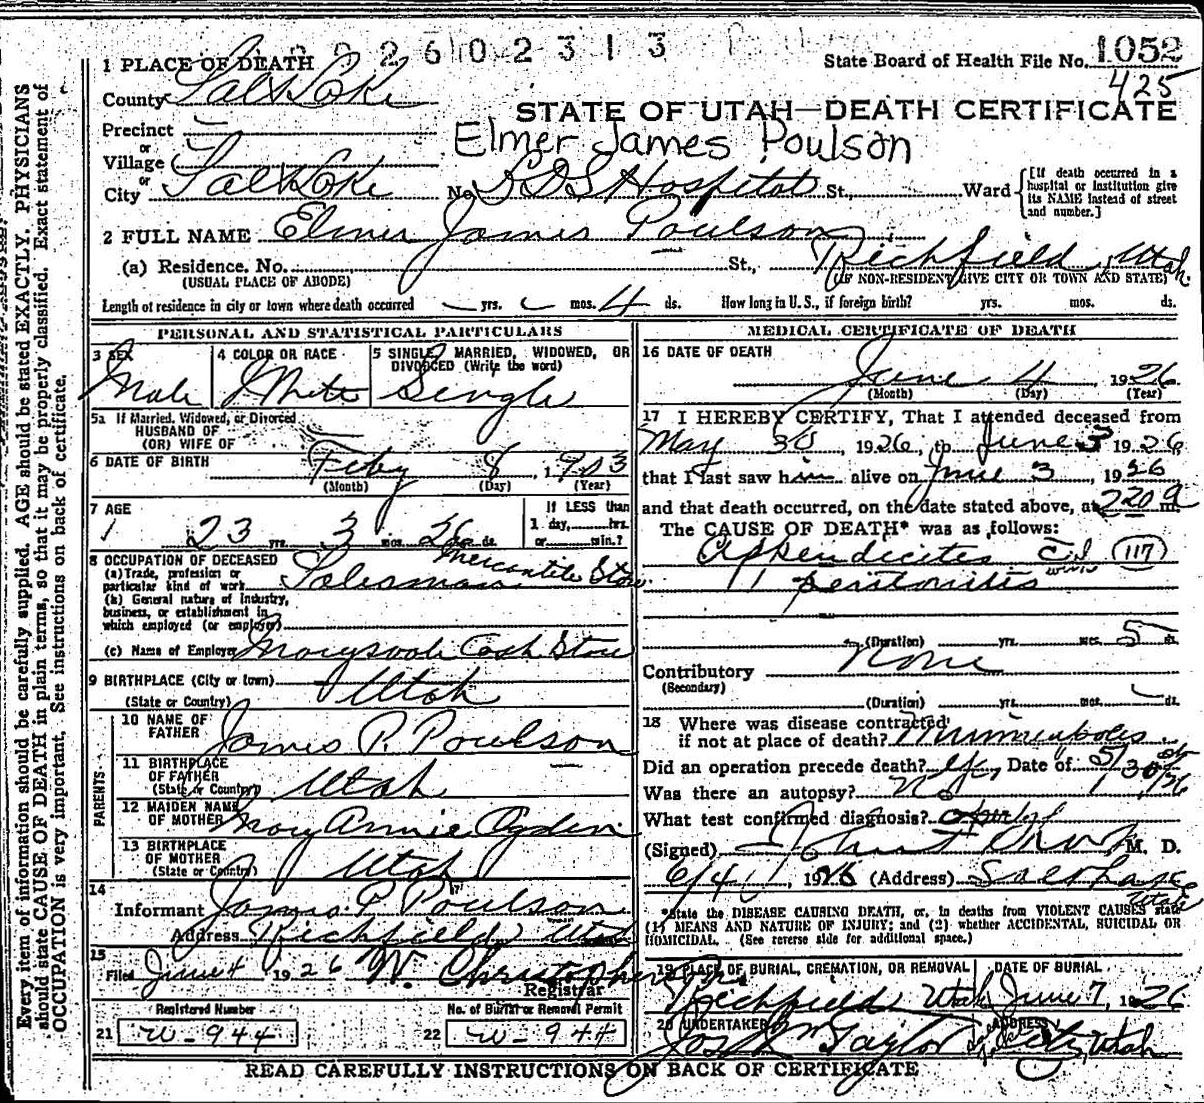 2602313
1 PLACE OF DEATH
State Board of Health File No. 1052
425
County Salt Lake
STATE OF UTAH—DEATH CERTIFICATE
Precinct
or
Village
Elmer James Poulson
or
City Salt Lake No. LDS Hospital St., Ward
[If death occurred in a hospital or institution give its NAME instead of street and number.]
2 FULL NAME Elmer James Poulson
(a) Residence. No. St., Richfield, Utah.
(USUAL PLACE OF ABODE) (IF NON-RESIDENT GIVE CITY OR TOWN AND STATE)
Length of residence in city or town where death occurred yrs. mos. 4 ds. How long in U.S., if foreign birth? yrs. mos. ds.
PERSONAL AND STATISTICAL PARTICULARS
3 SEX
Male
4 COLOR OR RACE
White
5 SINGLE, MARRIED, WIDOWED, OR DIVORCED (Write the word)
Single
5a If Married, Widowed, or Divorced
HUSBAND OF
(OR) WIFE OF
6 DATE OF BIRTH Feby 8, 1903
(Month) (Day) (Year)
7 AGE
23 yrs. 3 mos. 26 ds.
If LESS than
1 day, hrs.
or min.?
8 OCCUPATION OF DECEASED
(a) Trade, profession or
particular kind of work Salesman Mercantile Store
(b) General nature of Industry,
business, or establishment in
which employed (or employer)
(c) Name of Employer Marysvale Cash Store
9 BIRTHPLACE (City or town)
(State or Country) Utah
PARENTS
10 NAME OF
FATHER James P. Poulson
11 BIRTHPLACE
OF FATHER
(State or Country) Utah
12 MAIDEN NAME
OF MOTHER Mary Annie Ogden
13 BIRTHPLACE
OF MOTHER
(State or Country) Utah
14
Informant James P. Poulson
Address Richfield Utah
15
Filed June 4 1926 W. Christopherson
Registrar
Registered Number
21 W-944
No. of Burial or Removal Permit
22 W-944
MEDICAL CERTIFICATE OF DEATH
16 DATE OF DEATH
June 4, 1926
(Month) (Day) (Year)
17 I HEREBY CERTIFY, That I attended deceased from
May 30, 1926, to June 3 1926
that I last saw him alive on June 3, 1926
and that death occurred, on the date stated above, at 220 a m.
The CAUSE OF DEATH* was as follows:
Appendicites 117
" peritonitis
(Duration) yrs. mos. 5 ds.
Contributory None
(Secondary)
(Duration) yrs. mos. ds.
18 Where was disease contracted
if not at place of death?
Did an operation precede death? Yes Date of 5/30/26
Was there an autopsy? No
What test confirmed diagnosis?
(Signed) M. D.
6/4, 1926 (Address) Salt Lake
Utah
*State the DISEASE CAUSING DEATH, or, in deaths from VIOLENT CAUSES state
(1) MEANS AND NATURE OF INJURY; and (2) whether ACCIDENTAL, SUICIDAL OR
HOMICIDAL. (See reverse side for additional space.)
19 PLACE OF BURIAL, CREMATION, OR REMOVAL
Richfield Utah
DATE OF BURIAL
June 7, 1926
20 UNDERTAKER
Jos Wm Taylor
ADDRESS
City, Utah
READ CAREFULLY INSTRUCTIONS ON BACK OF CERTIFICATE
Every item of information should be carefully supplied. AGE should be stated EXACTLY. PHYSICIANS
should state CAUSE OF DEATH in plain terms, so that it may be properly classified. Exact statement of
OCCUPATION is very important. See instructions on back of certificate.